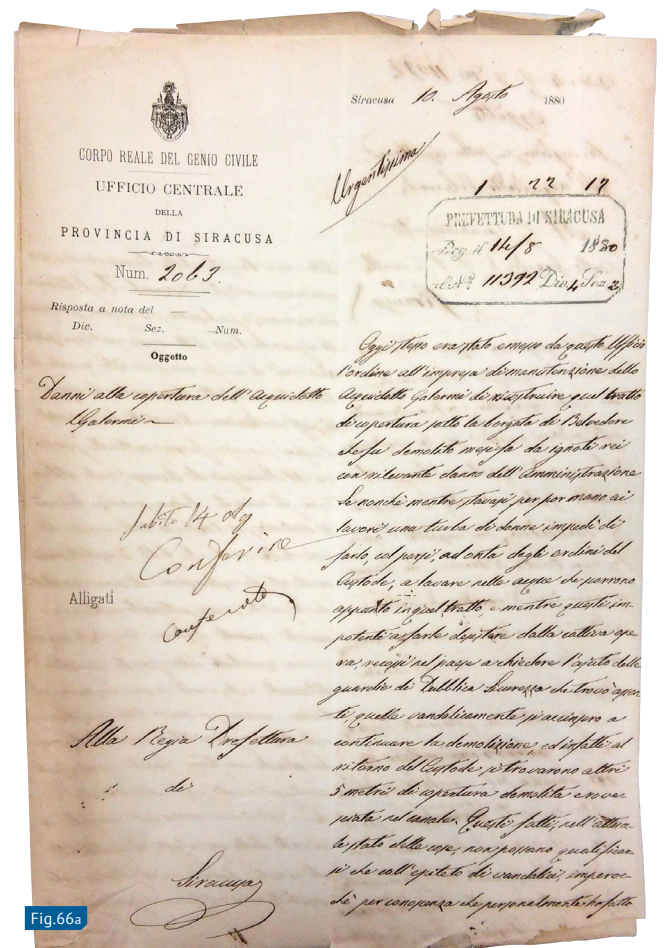 Siracusa 10. Agosto 1880
Urgentissima
CORPO REALE DEL GENIO CIVILE
UFFICIO CENTRALE
DELLA
PROVINCIA DI SIRACUSA
Num. 2063.
Risposta a nota del —
Div. Sez. Num.
Oggetto
Danni alla copertura dell'Acquidotto
Galermi
1 22 17
PREFETTURA DI SIRACUSA
14/8 1880
al Nº 11392 Div. 4 Sez 2
Subito 14
Conferire
Conferito
Alligati
Alla Regia Prefettura
di
Siracusa
Oggi stesso era stato emesso da questo Ufficio
l'ordine all'impresa di manutenzione dello
Acquidotto Galermi di ricostruire quel tratto
di copertura sotto la borgata di Belvedere
che fu demolito mesi fa da ignoti rei
con rilevante danno dell'Amministrazione
Se nonchè mentre stavasi per por mano ai
lavori, una turba di donne impedì di
farlo, col porsi, ad onta degli ordini del
Custode, a lavare nelle acque che scorrono
appunto in quel tratto, e mentre questi im-
potente a farle desistere dalla cattiva ope-
ra, recossi nel paese a chiedere l'ajuto delle
guardie di Pubblica Sicurezza che trovò assen-
ti, quelle vandalicamente si accinsero a
continuare la demolizione, ed infatti al
ritorno del Custode si trovarono altri
5 metri di copertura demolita e rove-
sciata nel canale. Questi fatti, nell'attua-
le stato delle cose, non possono qualificar-
si che coll'epiteto di vandalici, imperoc-
chè per conoscenza che personalmente ho fatto
Fig.66a